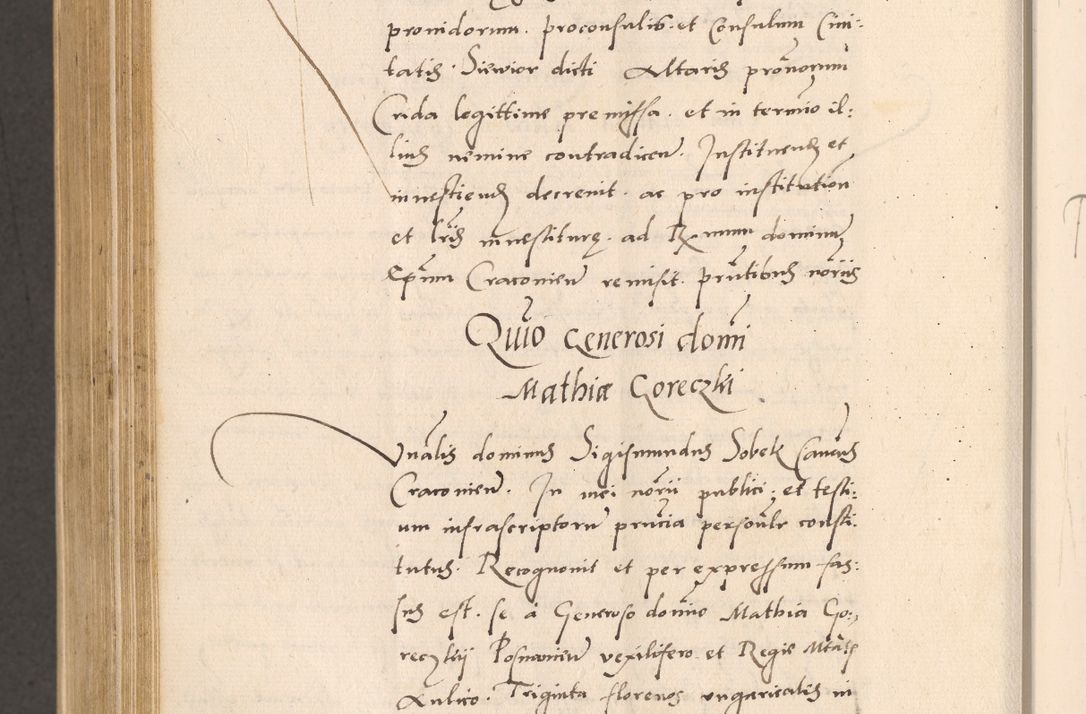 prouidorum. proconsulis. et Consulum Ciui:
tatis. Siewior dicti Altaris prouisorum
Crida legittime premissa. et in termino il:
lius nemine contradicen. Instituend et
inuestiend decreuit. ac pro institution
et lris inuestiturę. ad Rmum dominum
Epum Cracouien remisit. prntibus noriis
Quio Generosi domi
Mathiæ Goreczki.
Vnalis dominus Sigismundus Sobek Canus
Cracouien. In mei norii publici, et testi:
um infrascriptoru prncia personlr consti:
tutus. Recognouit et per expressum fas:
sus est. se a Generoso domino Mathia Go:
reczkij Posnanien vexilifero et Regie Mtatis
Aulico. Triginta florenos vngaricales in